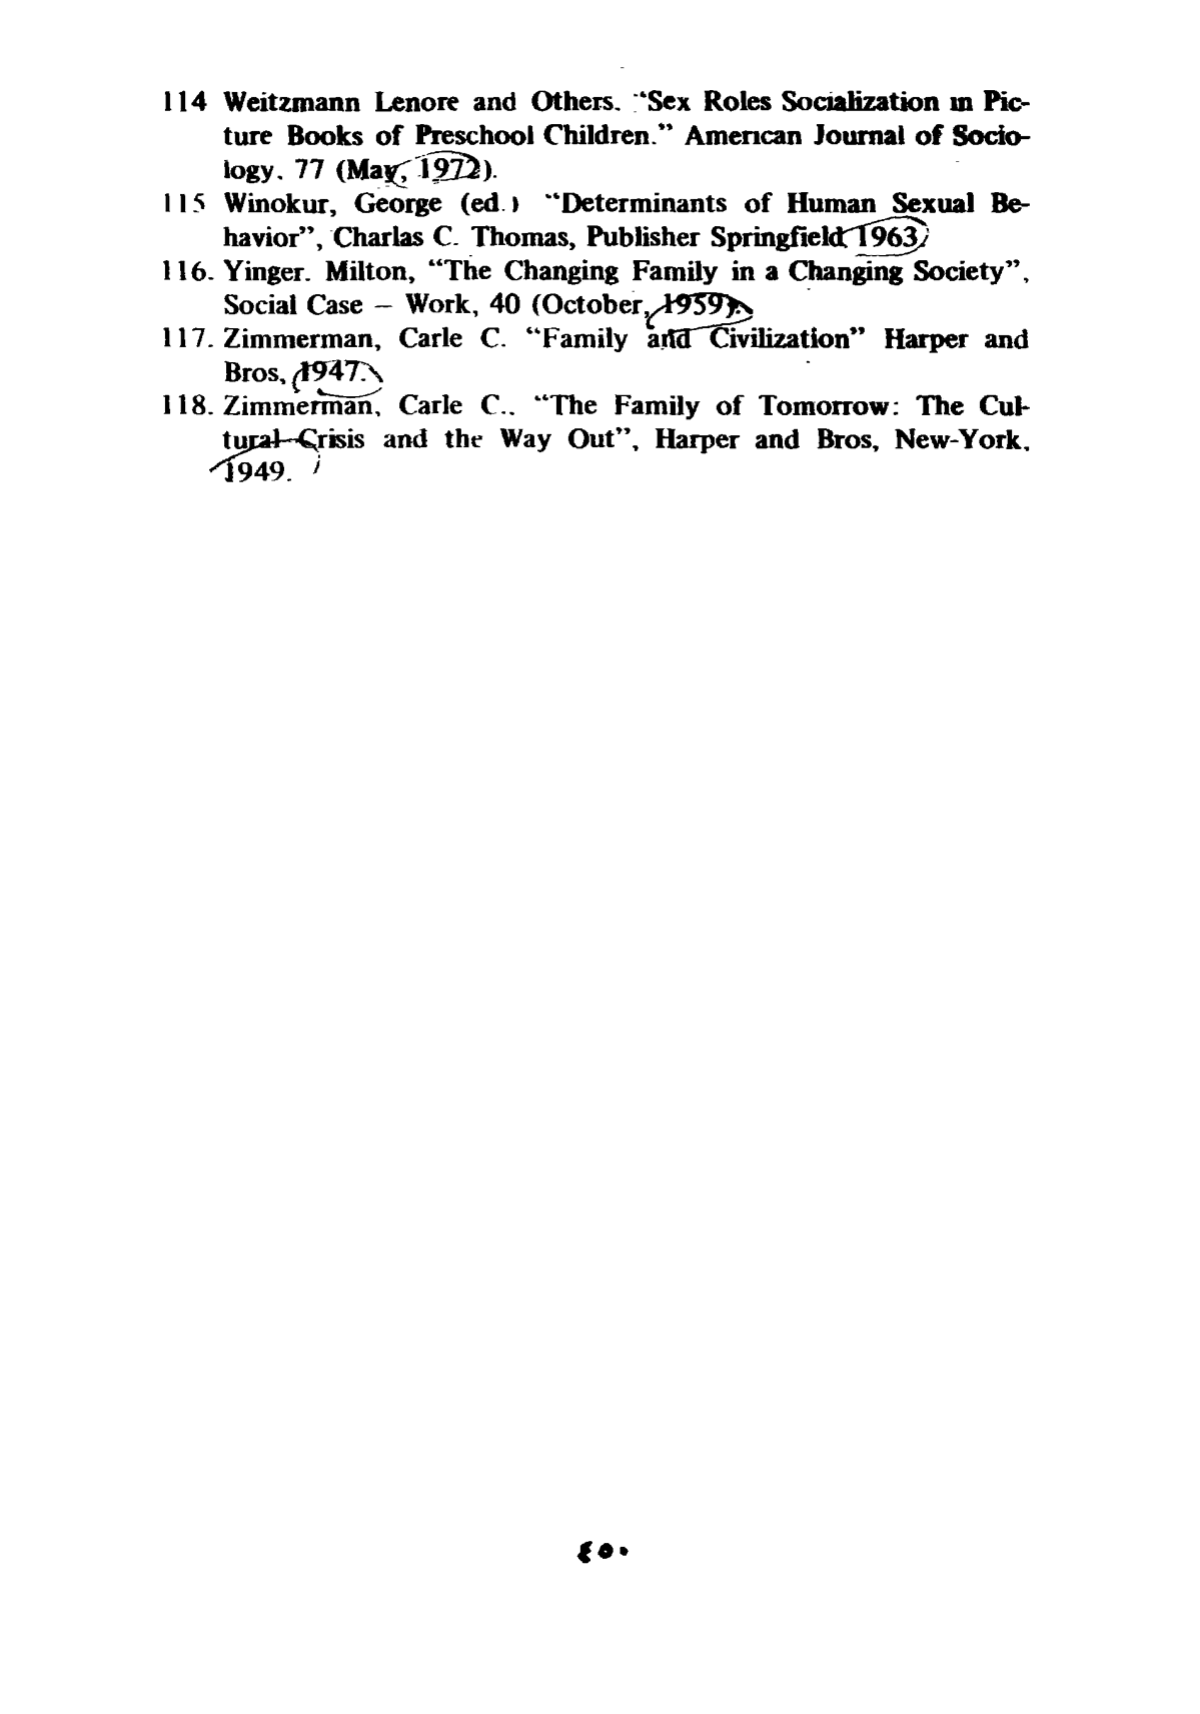 114 Weitzmann Lenore and Others. "Sex Roles Socialization in Pic-
ture Books of Preschool Children." American Journal of Socio-
logy. 77 (May, 1972).
115 Winokur, George (ed.) "Determinants of Human Sexual Be-
havior", Charlas C. Thomas, Publisher Springfield 1963
116. Yinger. Milton, "The Changing Family in a Changing Society",
Social Case – Work, 40 (October, 1959).
117. Zimmerman, Carle C. "Family and Civilization" Harper and
Bros, 1947.
118. Zimmerman, Carle C.. "The Family of Tomorrow: The Cul-
tural Crisis and the Way Out", Harper and Bros, New-York,
1949.
٤٥٠